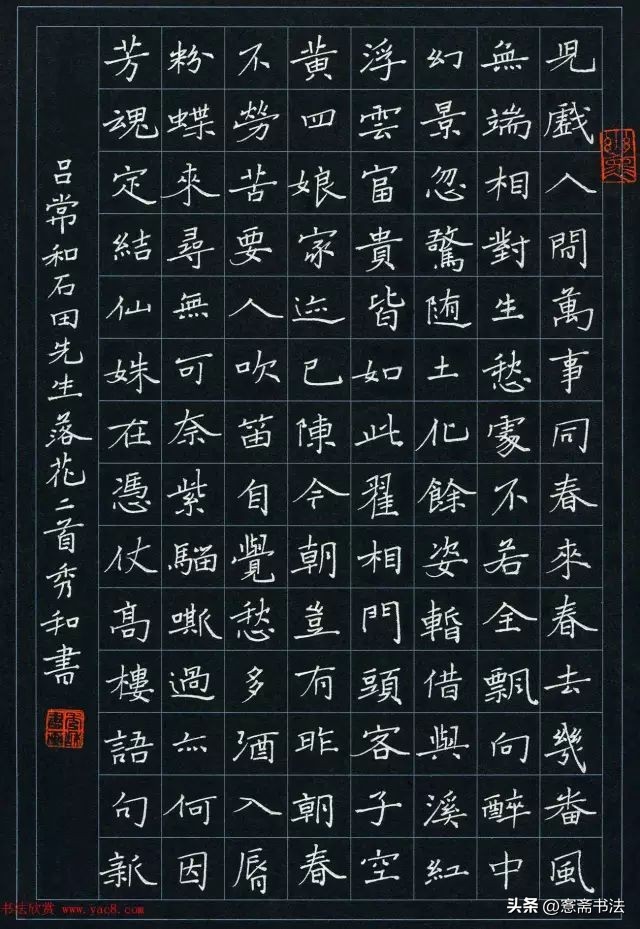 兒戲人間萬事同春來春去幾番風
無端相對生愁處不若全飄向醉中
幻景忽驚随土化餘姿暫借與溪紅
浮雲富貴皆如此翟相門頭客子空
黄四娘家迹已陳今朝豈有昨朝春
不勞苦要人吹笛自覺愁多酒入脣
粉蝶來尋無可奈紫騮嘶過亦何因
芳魂定結仙姝在憑仗高樓語句新
吕常和石田先生落花二首秀和書
书法欣赏 www.yac8.com
头条 @愙斋书法